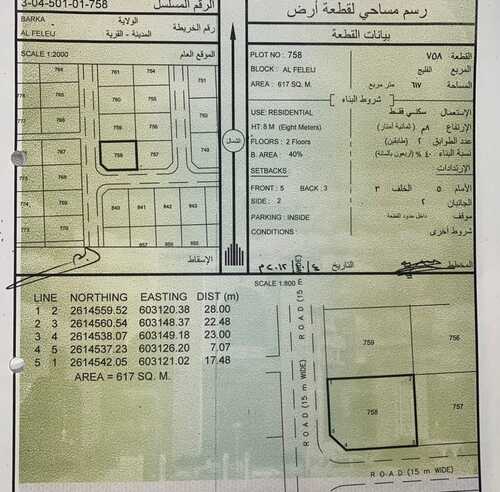 3-04-501-01-758
الرقم المسلسل
BARKA
الولاية
AL FELEIJ
المدينة - القرية
رقم الخريطة
SCALE 1:2000
الموقع العام
764
761
754
751
756
755
758
757
749
840
841
843
844
770
857
الإسقاط
الشمال
رسم مساحي لقطعة أرض
بيانات القطعة
PLOT NO : 758
القطعة ٧٥٨
BLOCK : AL FELEIJ
المربع الفليج
AREA : 617 SQ. M.
المساحة ٦١٧ متر مربع
شروط البناء
USE: RESIDENTIAL
الإستعمال سكني فقط
HT: 8 M (Eight Meters)
الإرتفاع ٨م (ثمانية أمتار)
FLOORS : 2 Floors
عدد الطوابق ٢ (طابقين)
B. AREA : 40%
نسبة البناء ٤٠٪ (أربعون بالمائة)
SETBACKS :
الإرتدادات
FRONT : 5 BACK : 3
الأمام ٥ الخلف ٣
SIDE : 2
الجانبان ٢
PARKING : INSIDE
موقف داخل حدود القطعة
CONDITIONS :
شروط أخرى
المخطط
التاريخ
SCALE 1:800
LINE NORTHING EASTING DIST (m)
1 2 2614559.52 603120.38 28.00
2 3 2614560.54 603148.37 22.48
3 4 2614538.07 603149.18 23.00
4 5 2614537.23 603126.20 7.07
5 1 2614542.05 603121.02 17.48
AREA = 617 SQ. M.
ROAD (15 m WIDE)
ROAD (15 m WIDE)
759
756
758
757
ROAD (15 m WIDE)